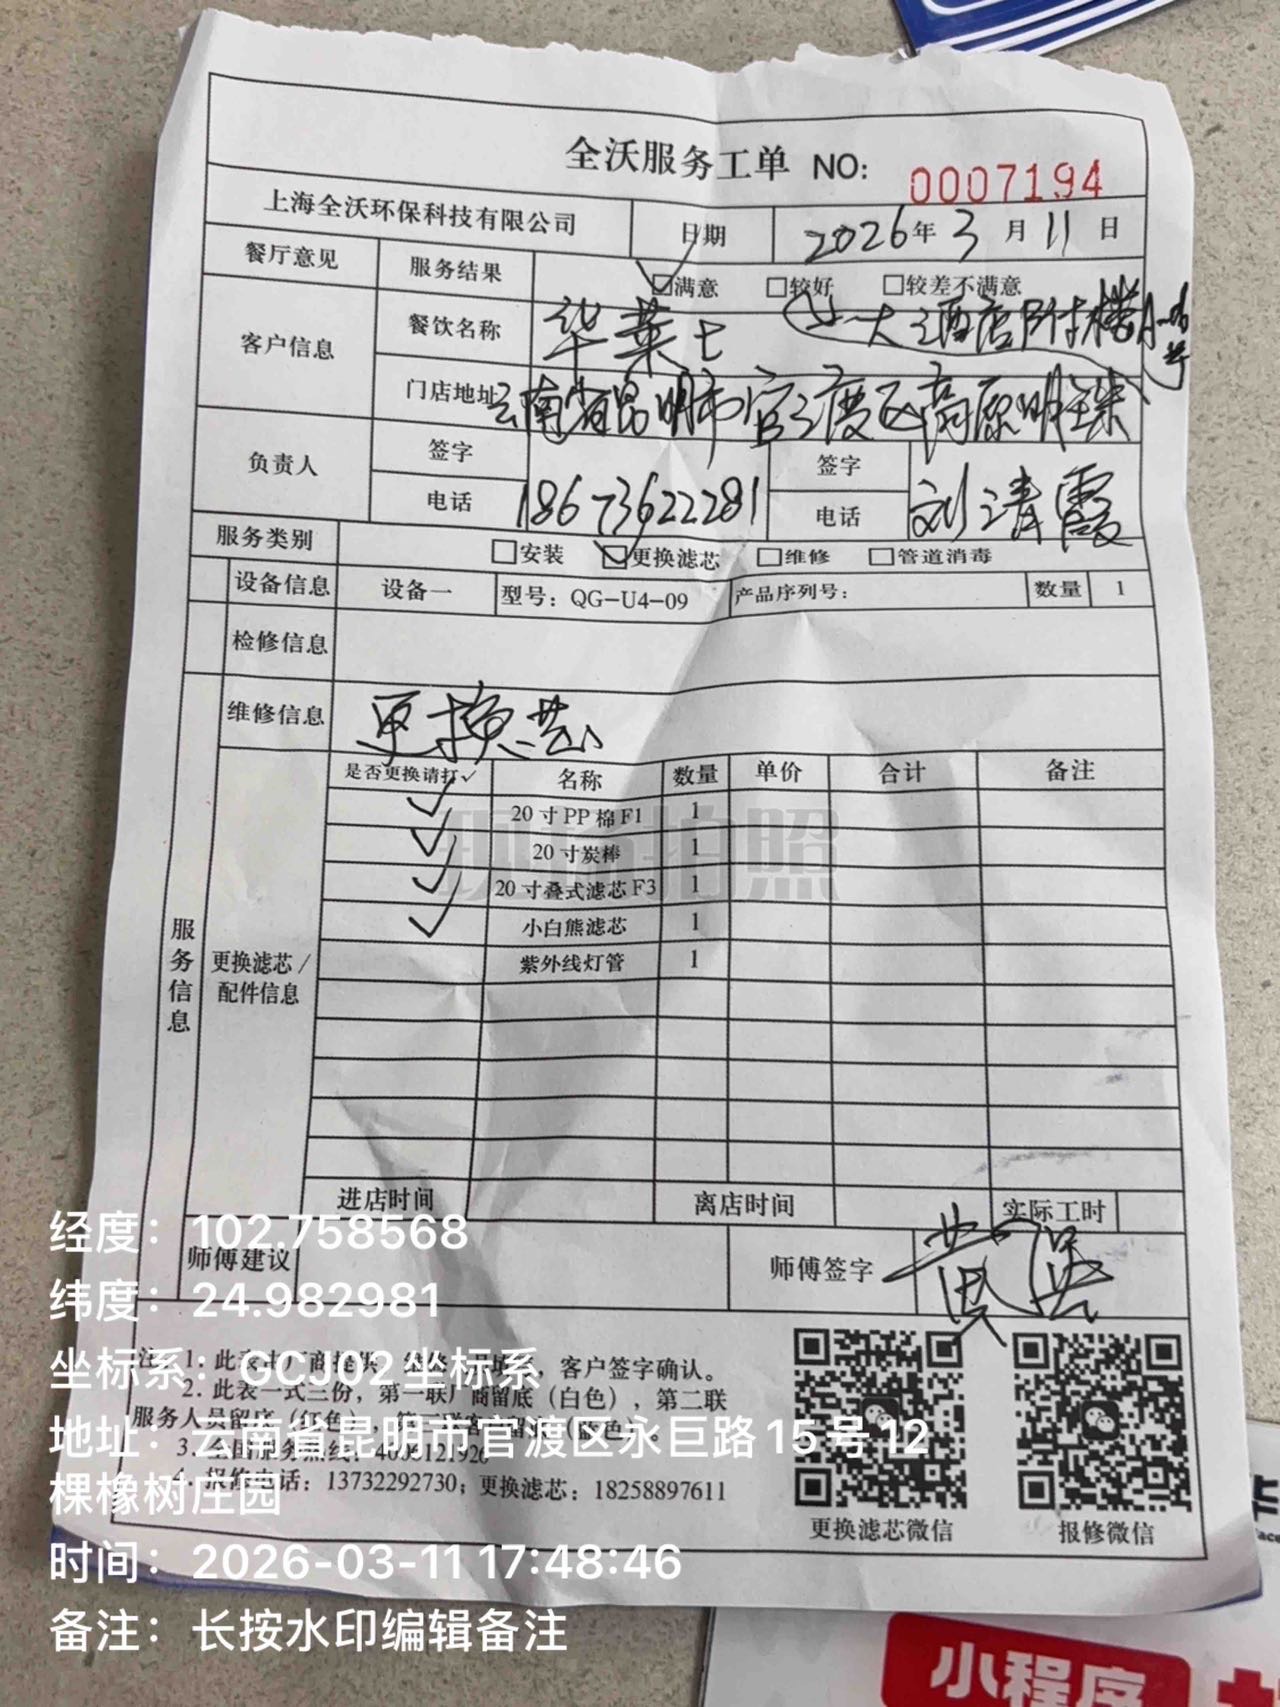 全沃服务工单 NO: 0007194
上海全沃环保科技有限公司 日期 2026年3月11日
餐厅意见 服务结果 ☑满意 □较好 □较差不满意
客户信息 餐饮名称 华莱士 大酒店附楼
门店地址 云南省昆明市官渡区高原明珠
负责人 签字 签字 刘清霞
电话 18673622281 电话
服务类别 □安装 ☑更换滤芯 □维修 □管道消毒
设备信息 设备一 型号：QG-U4-09 产品序列号： 数量 1
检修信息
维修信息 更换芯
服务信息
更换滤芯/配件信息
是否更换请打✓ 名称 数量 单价 合计 备注
✓ 20寸PP棉F1 1
✓ 20寸炭棒 1
✓ 20寸叠式滤芯F3 1
✓ 小白熊滤芯 1
紫外线灯管 1
现场拍照
进店时间 离店时间 实际工时
师傅建议 师傅签字 黄
注：1. 此表由厂商提供，客户签字确认。
2. 此表一式三份，第一联厂商留底（白色），第二联
服务人员留底（红色），
3. 全国服务热线：4006121926
4. 报修电话：13732292730；更换滤芯：18258897611
更换滤芯微信 报修微信
经度：102.758568
纬度：24.982981
坐标系：GCJ02坐标系
地址：云南省昆明市官渡区永巨路15号12
棵橡树庄园
时间：2026-03-11 17:48:46
备注：长按水印编辑备注
小程序